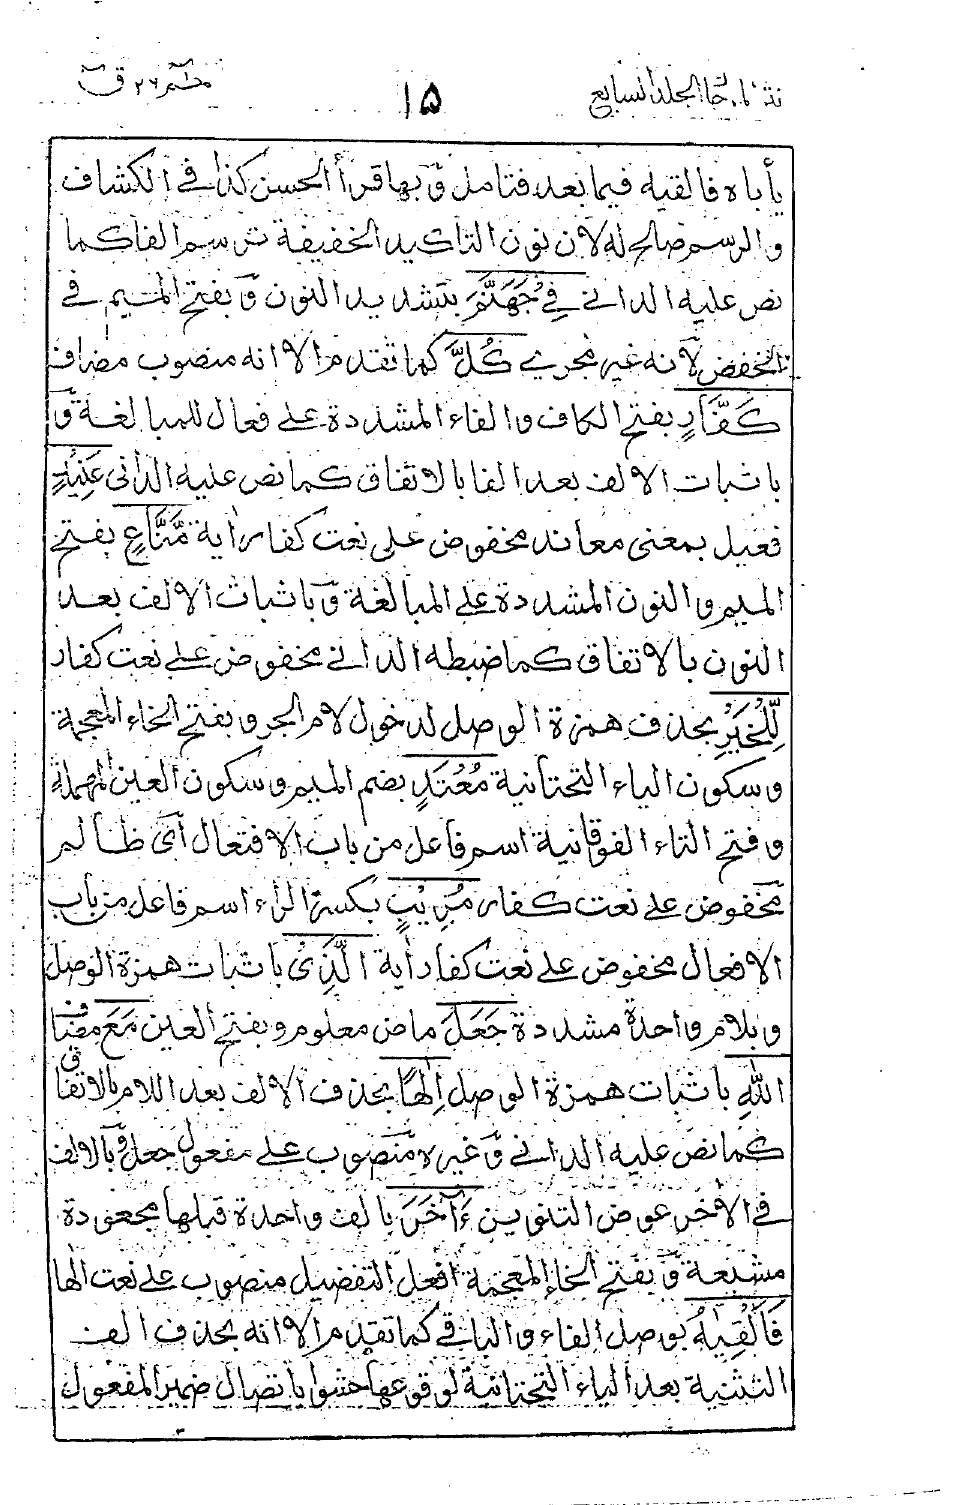 الجلد السابع
١٥
يأباه فالقيه فيما بعد فتامل وّ بها قرأ الحسن كذا في الكشاف
والرسم صالح له لان نون التاكيد الخفيفة ترسم الفا كما
نص عليه الداني فِي جَهَنَّمَ بتشديد النون وّ بفتح الميم في
الخفض لانه غير مجرى كُلَّ كما تقدم الا انه منصوب مضاف
كَفَّارٍ بفتح الكاف والفاء المشددة على فعال للمبالغة وّ
باثبات الالف بعد الفا بالاتفاق كما نص عليه الداني عَنِيْدٍ
فعيل بمعنى معاند مخفوض على نعت كفار اٰية مَّنَّاعٍ بفتح
الميم والنون المشددة على المبالغة وّ باثبات الالف بعد
النون بالاتفاق كما ضبطه الداني مخفوض على نعت كفار
لِّلْخَيْرِ بحذف همزة الوصل لدخول لام الجر و بفتح الخاء المعجمة
وسكون الياء التحتانية مُعْتَدٍ بضم الميم وسكون العين المهملة
وفتح التاء الفوقانية اسم فاعل من باب الافتعال أى ظالم
مخفوض على نعت كفار مُّرِيْبٍ بكسرة الراء اسم فاعل من باب
الافعال مخفوض على نعت كفار اٰية الَّذِىْ باثبات همزة الوصل
وبلام واحدة مشددة جَعَلَ ماض معلوم وبفتح العين مَعَ مضاف
اللّٰهِ باثبات همزة الوصل اِلٰهًا بحذف الالف بعد اللام بالاتفاق
كما نص عليه الداني وّ غيره منصوب على مفعول جعل وّ بالالف
في الاٰخر عوض التنوين ءَاخَرَ بالف واحدة قبلها مجعودة
مشبعة وّ بفتح الخاء المعجمة افعل التفضيل منصوب على نعت الٰها
فَاَلْقِيٰهُ بوصل الفاء والباقي كما تقدم الا انه بحذف الف
التثنية بعد الياء التحتانية لوقوعها حشوا باتصال ضمير المفعول